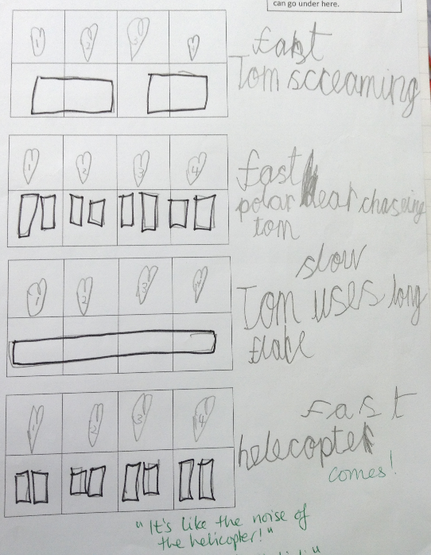 can go under here.
1 2 3 4
fast
Tom screaming
1 2 3 4
fast
polar bear chaseing
tom
1 2 3 4
slow
Tom uses long
flare
1 2 3 4
Fast
helecopter
comes!
"It's like the noise of
the helicopter!"